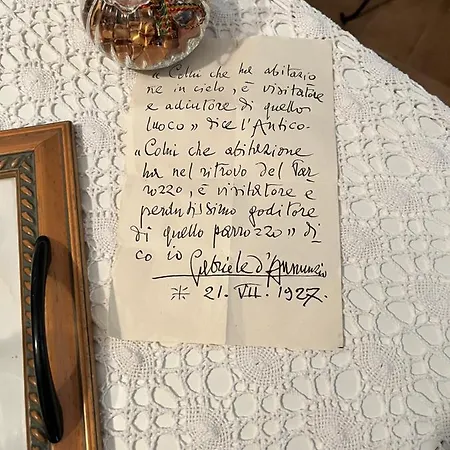 «Colui che ha abitazio
ne in cielo, è visitatore
e adiutore di quello
luoco» dice l'Antico-
«Colui che abitazione
ha nel ritrovo del Par
rozzo, è visitatore e
perdutissimo goditore
di quello parrozzo» di
co io
Gabriele d'Annunzio
21. VII. 1927.